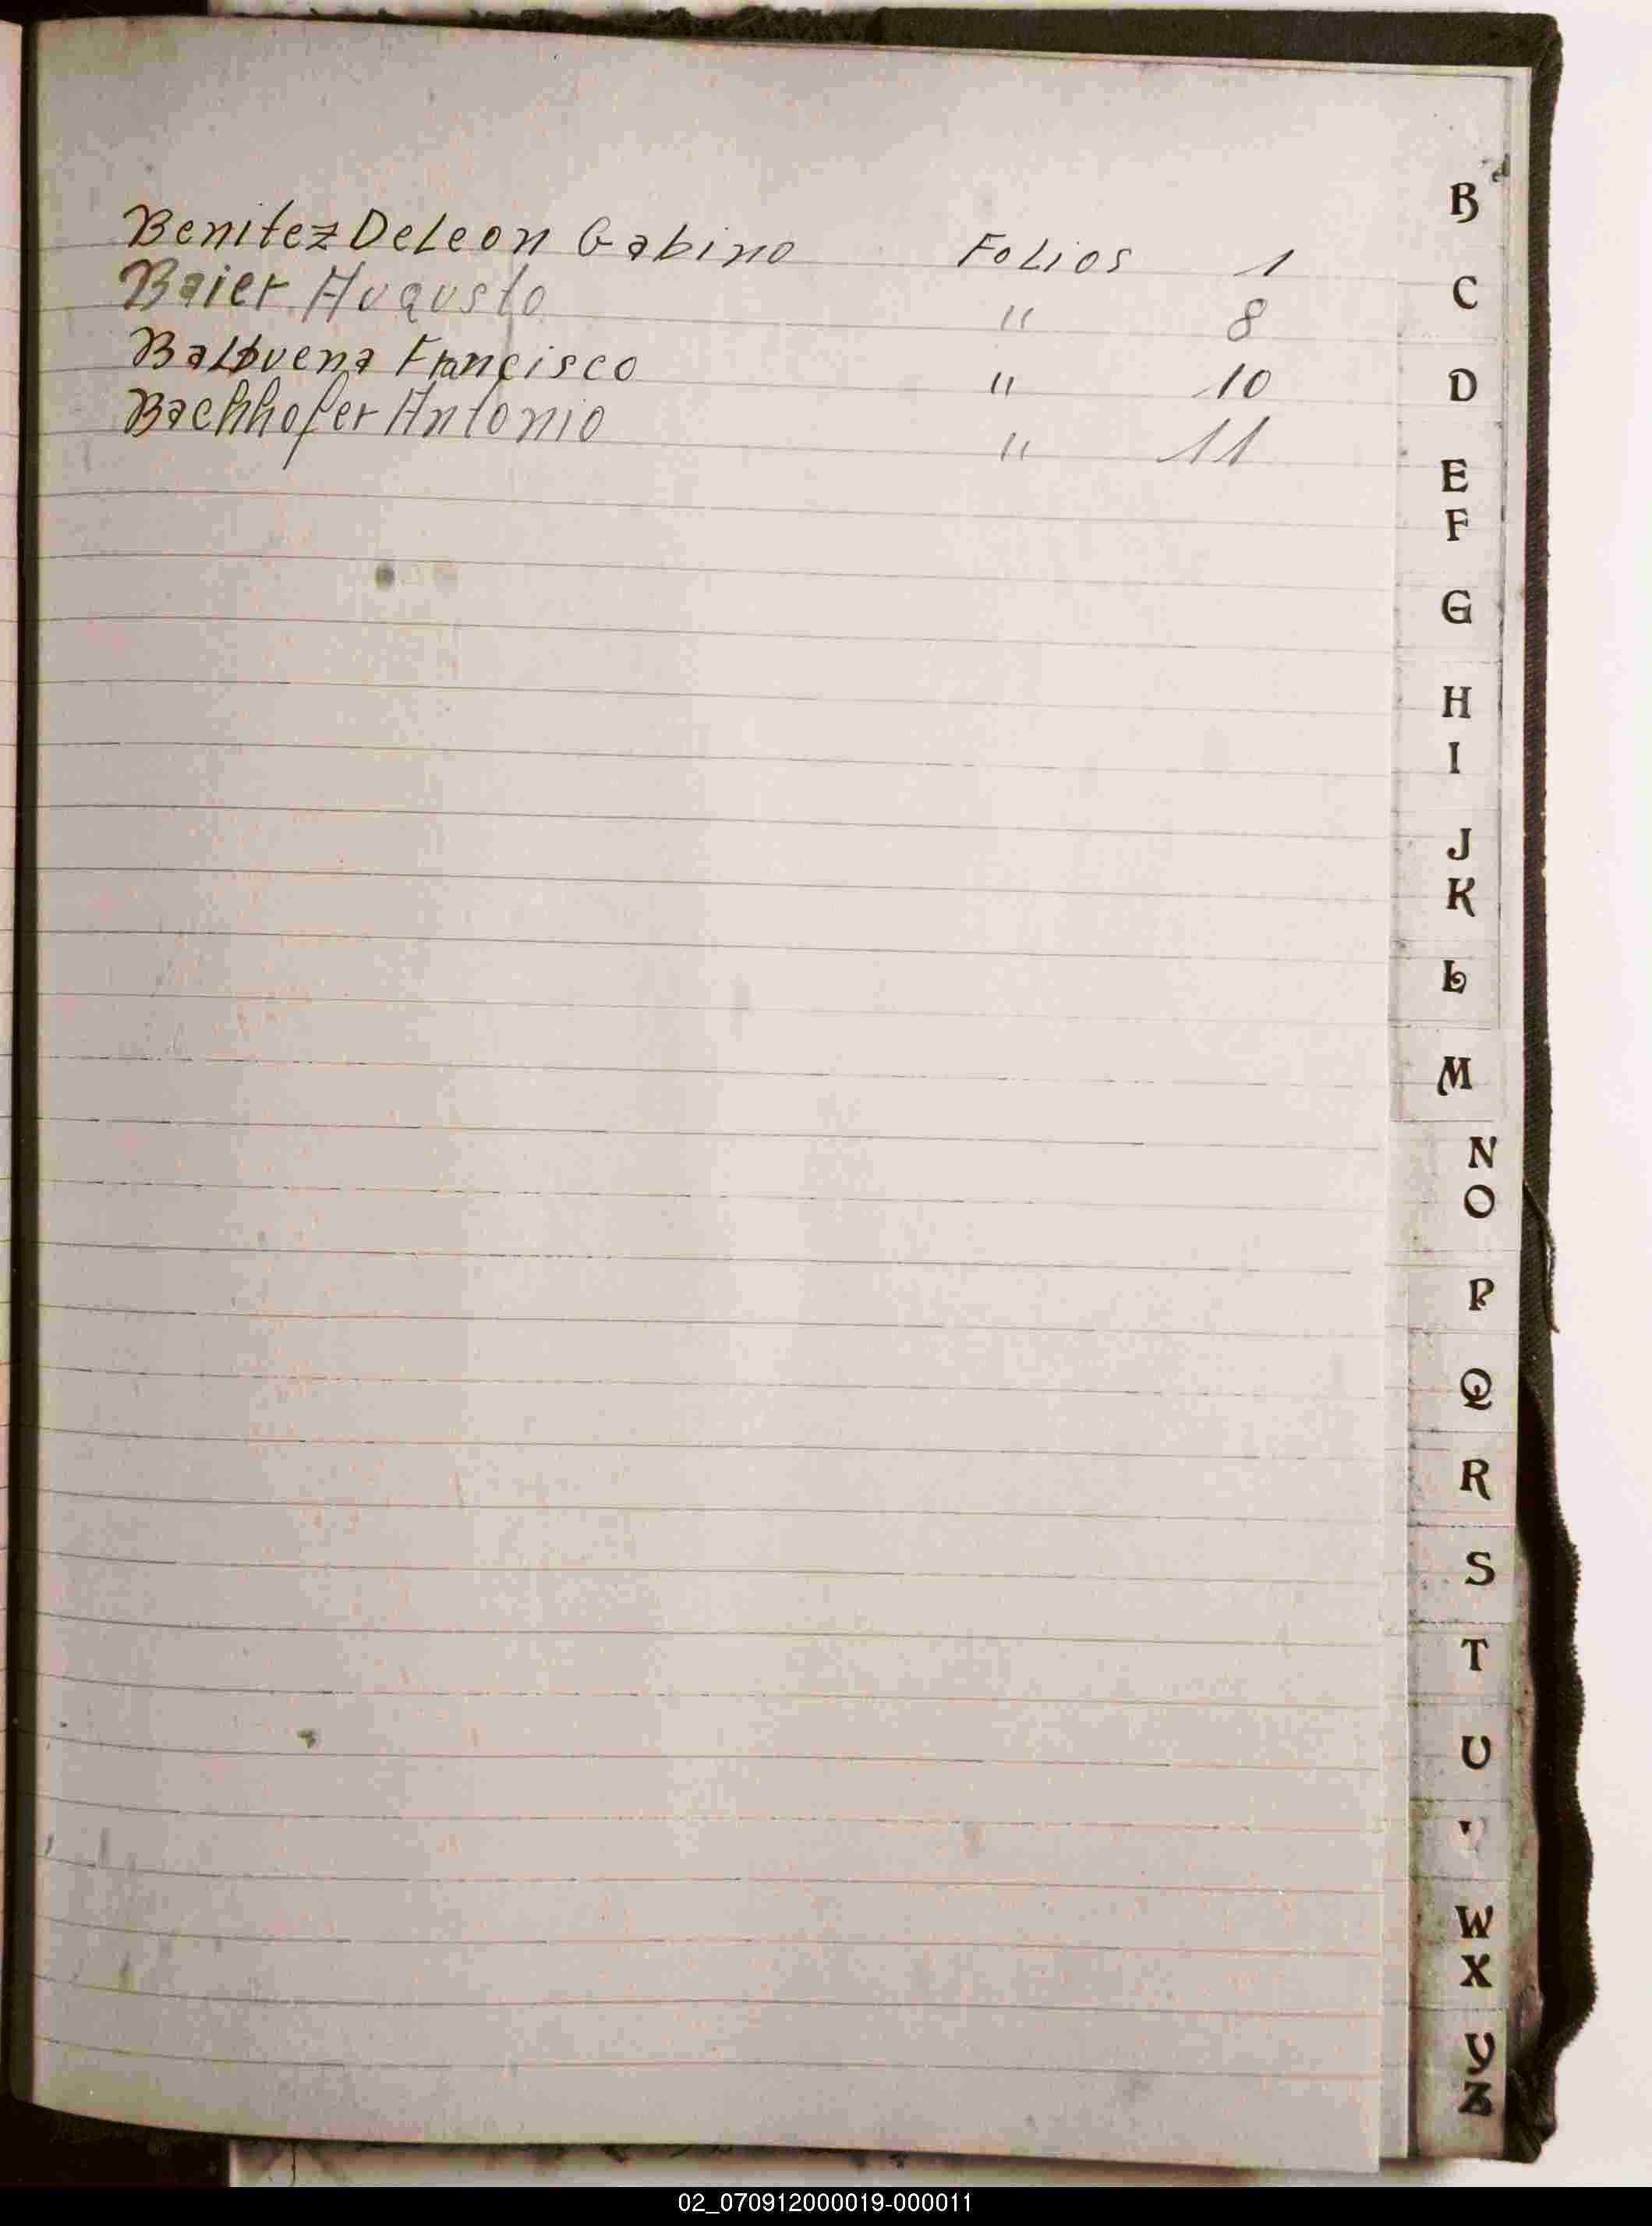 Benitez DeLeon Gabino Folios 1
Baier Augusto " 8
Balbuena Francisco " 10
Bachhofer Antonio " 11
B
C
D
E
F
G
H
I
J
K
L
M
N
O
P
Q
R
S
T
U
W
X
Y
Z
02_070912000019-000011